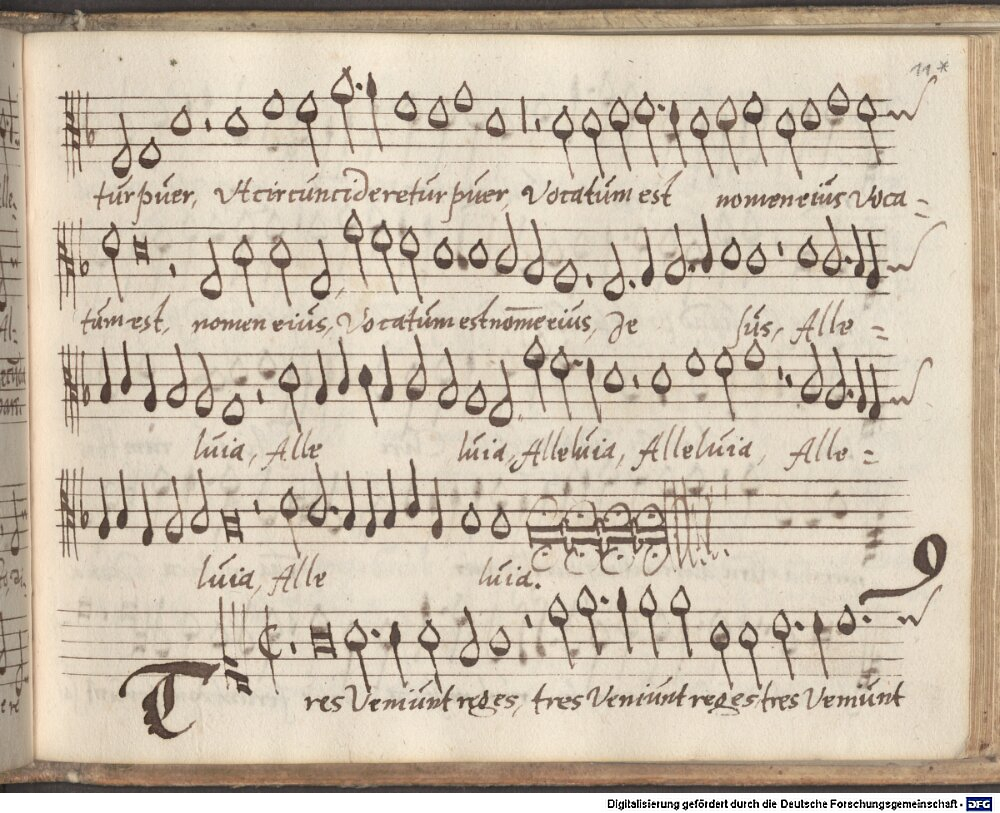 11*
tur puer, Ut circuncideretur puer, Vocatum est nomen eius Voca=
tum est, nomen eius, Vocatum est nom̄e eius, Je sus, Alle=
luia, Alle luia, Alleluia, Alleluia, Alle=
luia, Alle luia.
9
Tres Veniunt reges, tres Veniunt reges, tres Veniunt
Digitalisierung gefördert durch die Deutsche Forschungsgemeinschaft - DFG